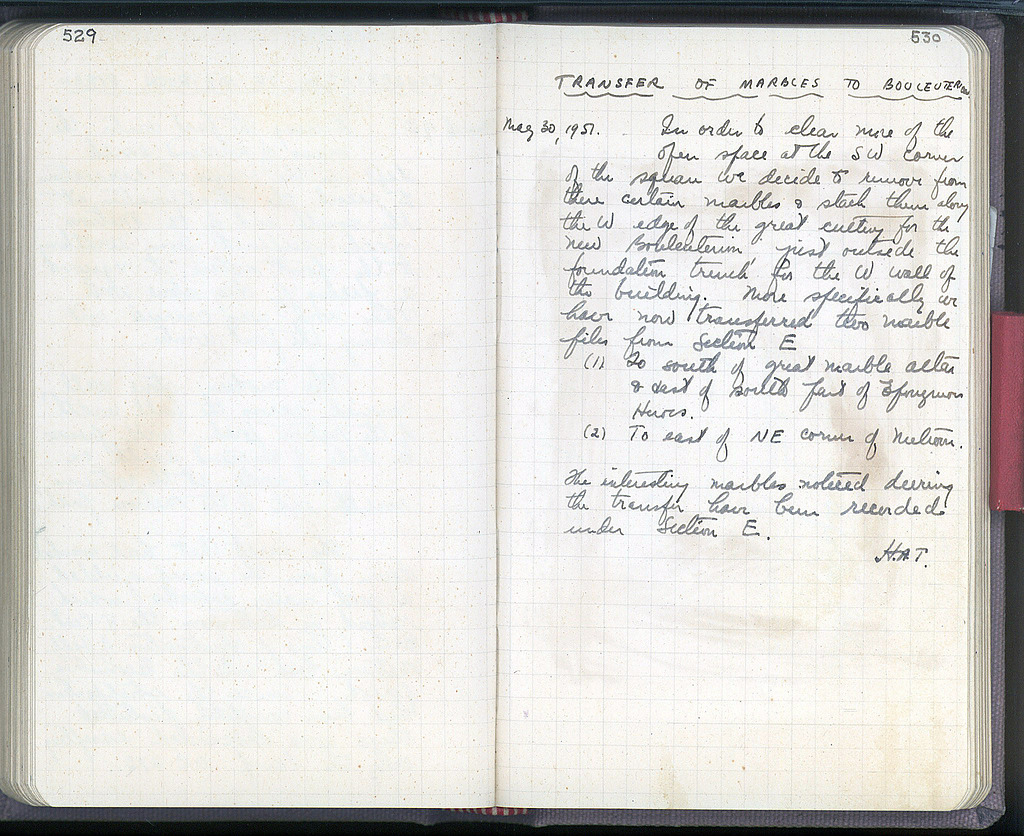 529
530
TRANSFER OF MARBLES TO BOULEUTERION
May 30, 1951. In order to clear more of the
open space at the SW corner
of the square we decide to remove from
there certain marbles & stack them along
the W edge of the great cutting for the
new Bouleuterion just outside the
foundation trench for the W wall of
the building. More specifically we
have now transferred two marble
piles from Section E
(1) To south of great marble altar
& east of south part of Eponymous
Heroes.
(2) To east of NE corner of Metroon.
The interesting marbles noticed during
the transfer have been recorded
under Section E.
H.A.T.